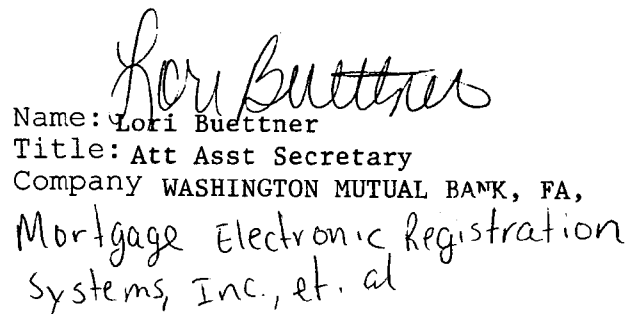 Lori Buettner
Name: Lori Buettner
Title: Att Asst Secretary
Company WASHINGTON MUTUAL BANK, FA,
Mortgage Electronic Registration
Systems, Inc., et. al